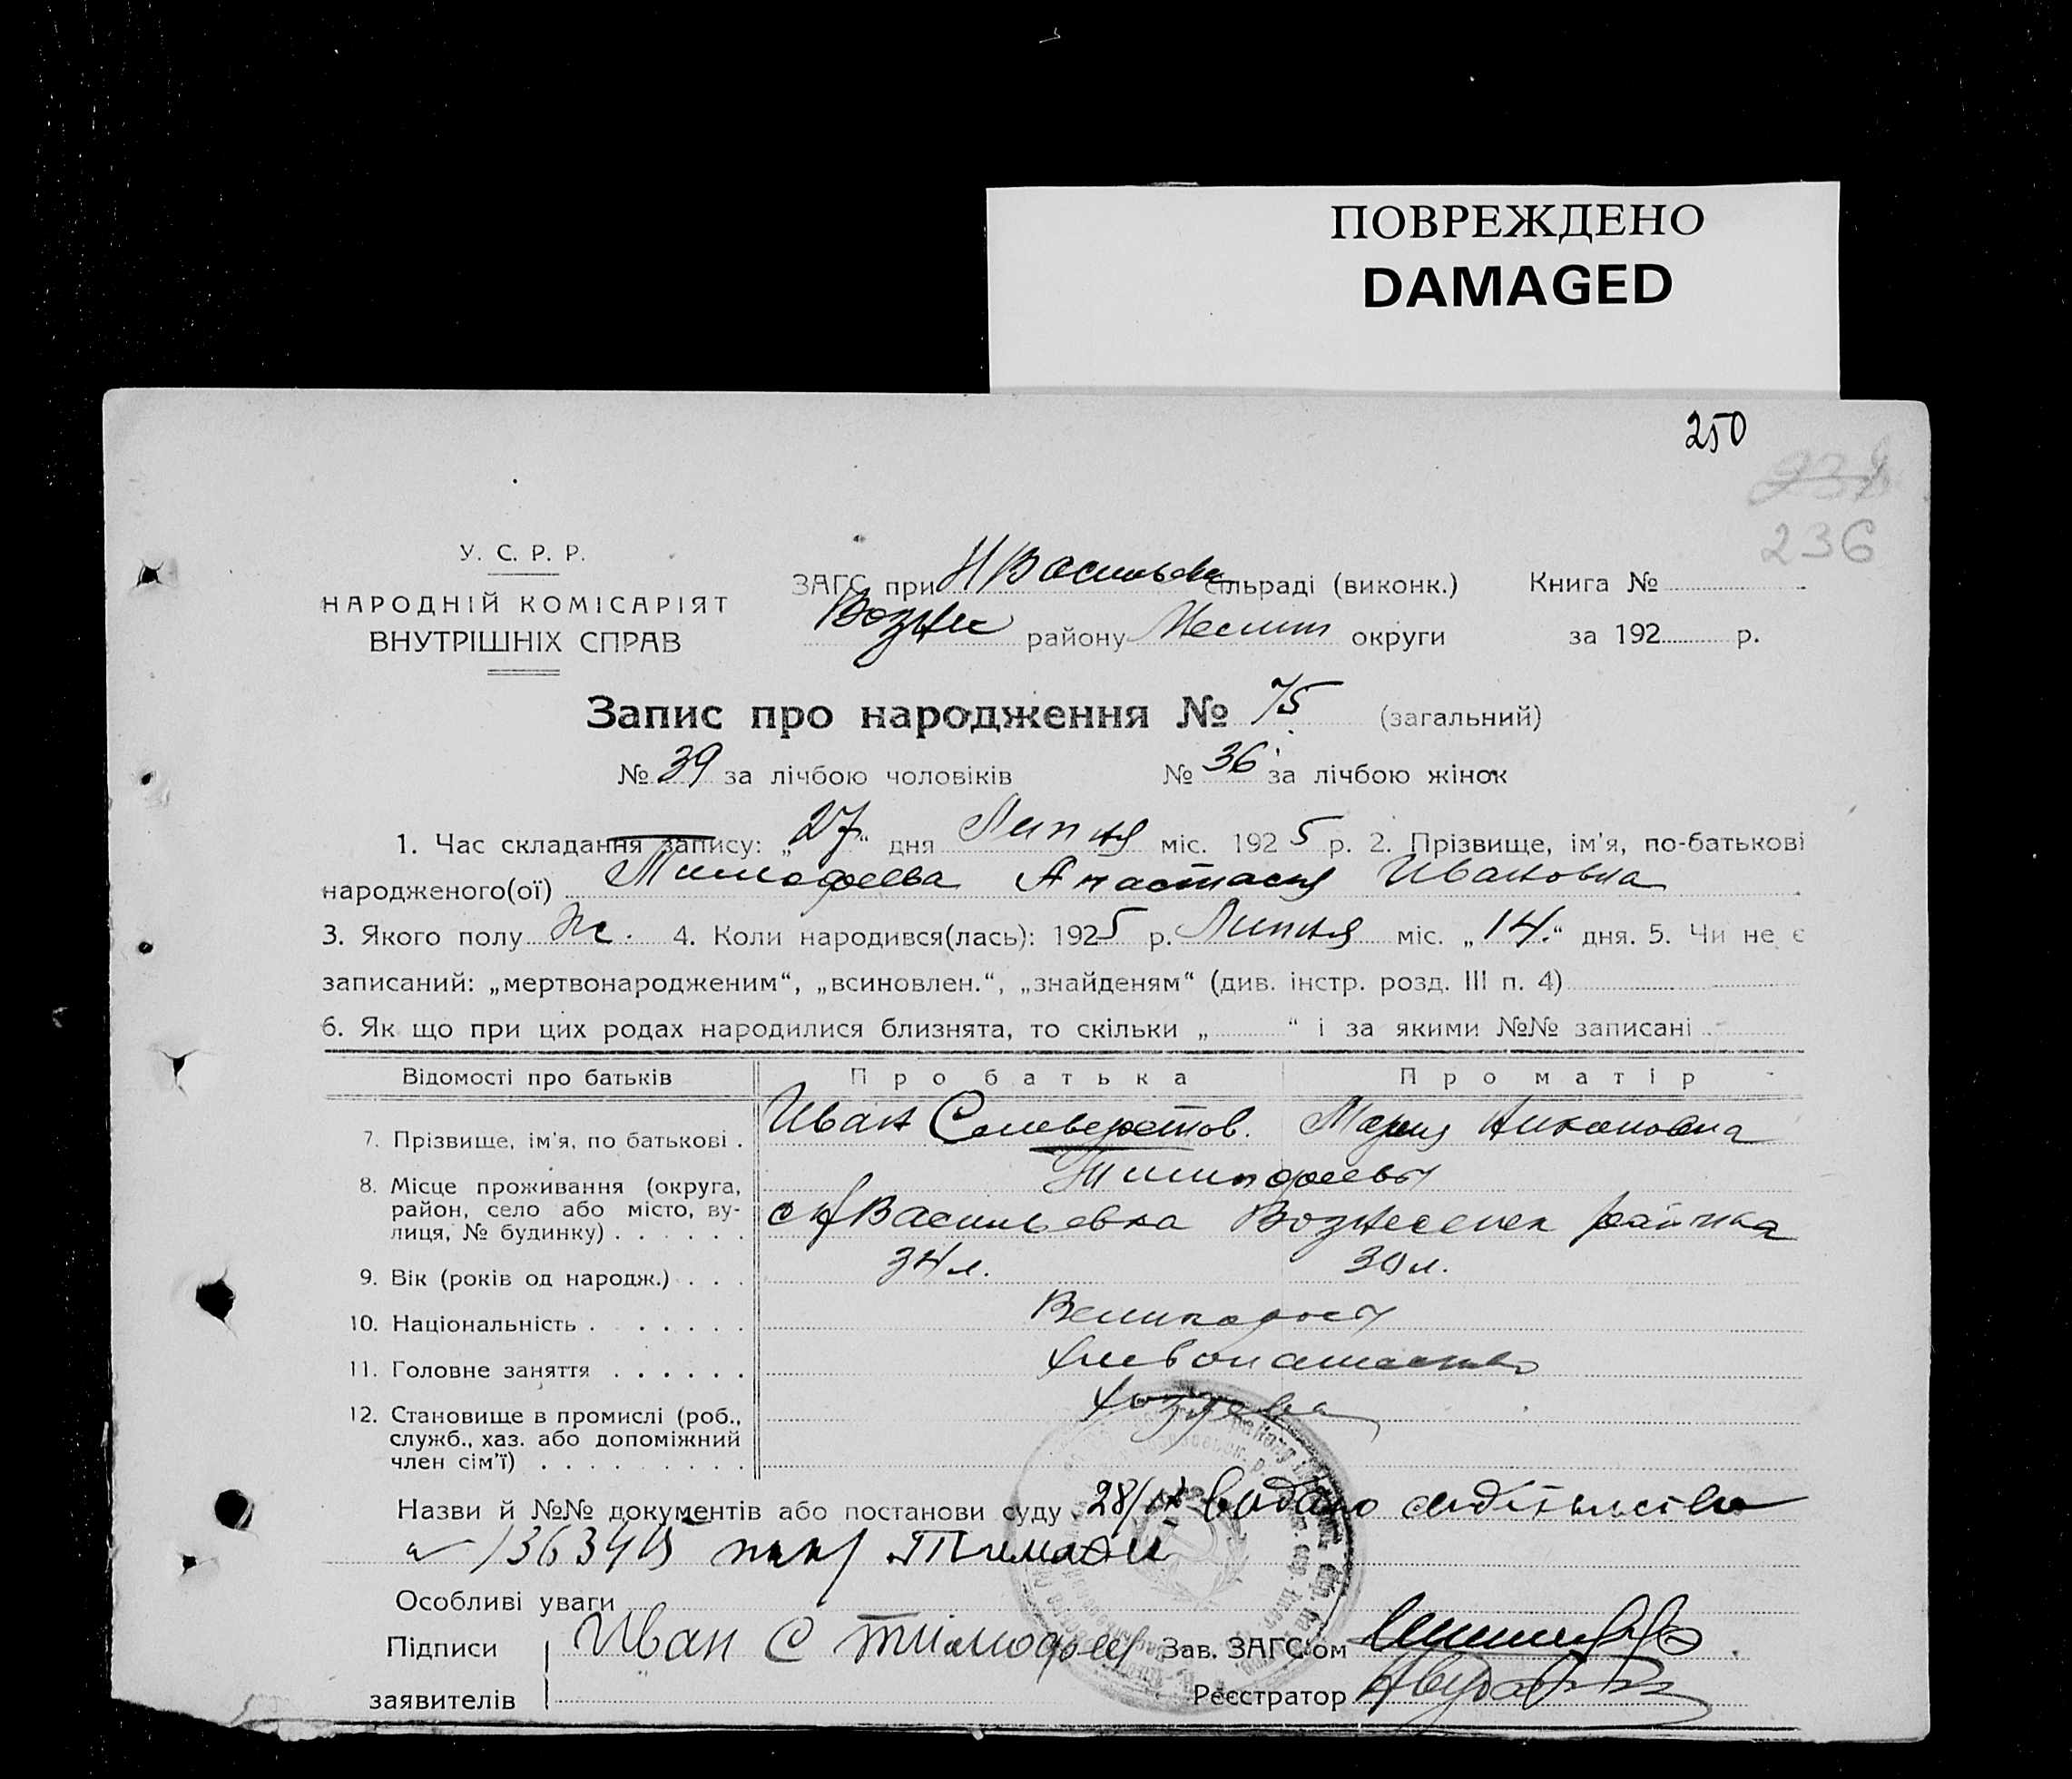 ПОВРЕЖДЕНО
DAMAGED
250
236
У. С. Р. Р.
НАРОДНІЙ КОМІСАРІЯТ
ВНУТРІШНІХ СПРАВ
ЗАГС при сільраді (виконк.) Книга №
Вознес району округи за 192 р.
Запис про народження № 75 (загальний)
№ 39 за лічбою чоловіків № 36 за лічбою жінок
1. Час складання запису: „27“ дня Липня міс. 1925 р. 2. Прізвище, ім'я, по-батькові
народженого(ої) Тимофеева Анастасия Ивановна
3. Якого полу ж. 4. Коли народився(лась): 1925 р. Липня міс. „14.“ дня. 5. Чи не є
записаний: „мертвонародженим“, „всиновлен.“, „знайденям“ (див. інстр. розд. III п. 4)
6. Як що при цих родах народилися близнята, то скільки „ “ і за якими №№ записані
Відомості про батьків Про батька Про матір
7. Прізвище, ім'я, по батькові . Иван Селеверстов. Мария
Тимофеевы
8. Місце проживання (округа,
район, село або місто, ву-
лиця, № будинку) . . . . . . Васильевка района
9. Вік (років од народж.) . . . 34 л. 30 л.
10. Національність . . . . . . Великоросы
11. Головне заняття . . . . . . хлебопашество
12. Становище в промислі (роб.,
служб., хаз. або допоміжний
член сім'ї) . . . . . . . . .
Назви й №№ документів або постанови суду 28/IX видано
Особливі уваги
Підписи Иван С Зав. ЗАГС'ом
заявителів Реєстратор